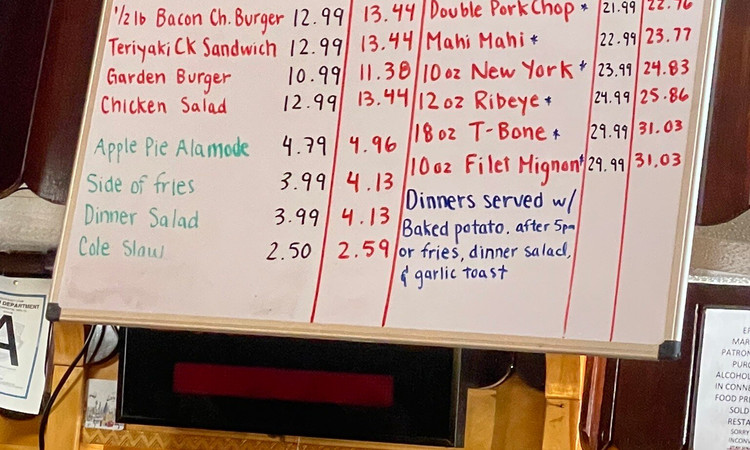 1/2 lb Bacon Ch. Burger 12.99 13.44
Teriyaki Ck Sandwich 12.99 13.44
Garden Burger 10.99 11.38
Chicken Salad 12.99 13.44
Apple Pie Alamode 4.79 4.96
Side of fries 3.99 4.13
Dinner Salad 3.99 4.13
Cole Slaw 2.50 2.59
Double Pork Chop * 21.99 22.76
Mahi Mahi * 22.99 23.77
10 oz New York * 23.99 24.83
12 oz Ribeye * 24.99 25.86
18 oz T-Bone * 29.99 31.03
10 oz Filet Mignon * 29.99 31.03
Dinners served w/
Baked potato. after 5pm
or fries, dinner salad,
& garlic toast
DEPARTMENT
A
MAR
PATRON
PUR
ALCOHOL
IN CONNE
FOOD PRE
SOLD
RESTA
SORRY
INCONV